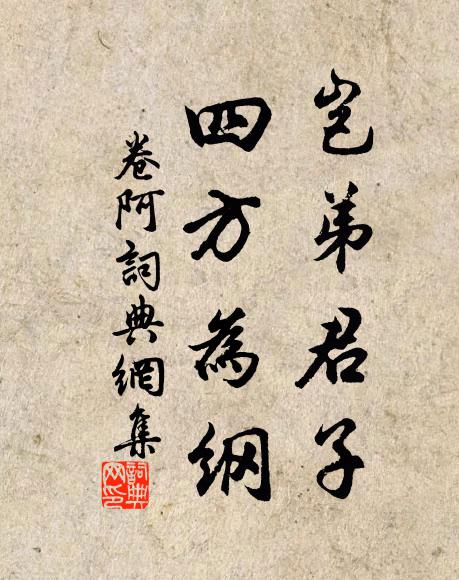 岂弟君子
四方為綱
卷阿詞典網集
詞典
网印